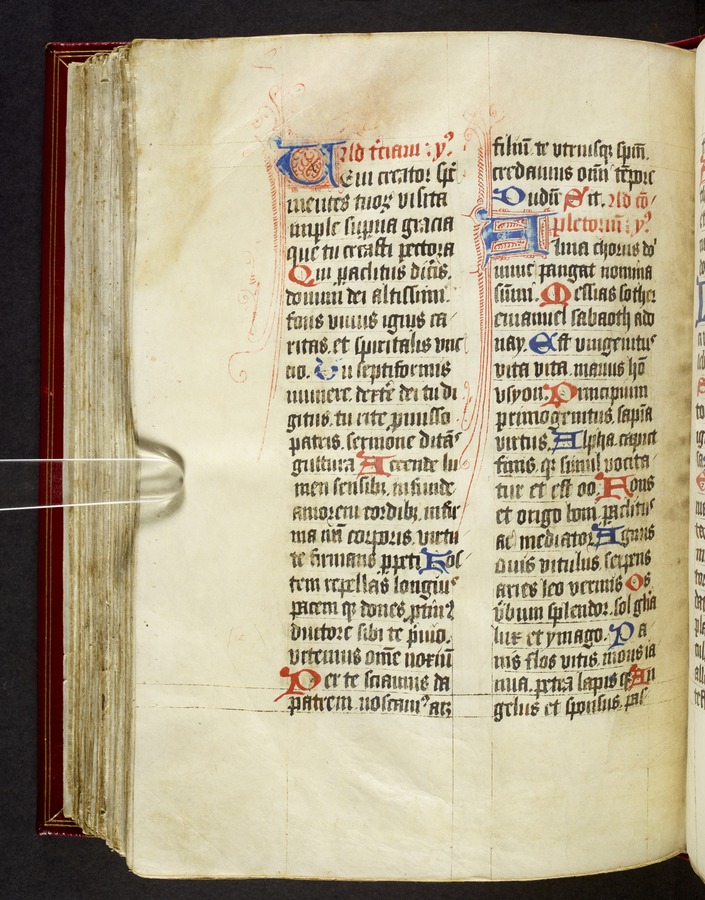 Ad t͛ciam : y͛?
Veni creator sp̄c
mentes tuoꝝ visita
imple supna gracia
que tu creasti pectora
Qui paclitus dic̄is.
donum dei altissimi.
fons viuus ignis ca
ritas. et spiritalis vnc
cio. Tu septiformis
munere. dext̄e dei tu di
gitus. tu rite pmisso
patris. sermone ditās
guttura Accende lu
men sensibꝫ. infunde
amorem cordibꝫ. infir
ma nr̄i corporis. virtu
te firmans ppeti Hos
tem repellas longiꝰ
pacem qꝫ dones ptinꝰ
ductore sibi te pͥuio.
vitemus om̄e noxiū
Per te sciamus da
patrem. noscamꝰ atꝫ
filiū. te vtriusqꝫ spm̄.
credamus om̄i tēpore
Dudū Sit. Ad cō
pletorium : y͛?
Alma chorus do
mini͛ pangat nomina
sūmi. Messias sother
emanuel sabaoth ado
nay. Est vnigenitꝰ
vita via. manus hō
vsyon. Principium
primogenitus. sapīa
virtus. Alpha. caput
finis. qꝫ simul vocita
tur et est oo. Fons
et origo boni paclitꝰ
ac mediator Agnus
ouis vitulus. serpens
aries leo vermis Os
vbum splendor. sol glīa
lux et ymago. Pa
nis flos vitis. mons ia
nua. petra lapis qꝫ An
gelus et sponsus. pas